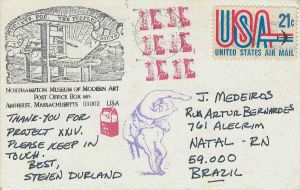 USA 21c
UNITED STATES AIR MAIL
NORTHAMPTON MUSEUM OF MODERN ART
POST OFFICE BOX
AMHERST, MASSACHUSETTS 01002 USA
THANK-YOU FOR
PROJECT XXIV.
PLEASE KEEP IN
TOUCH.
BEST,
STEVEN DURLAND
J. MEDEIROS
RUA ARTUR BERNARDES
761 ALECRIM
NATAL - RN
59.000
BRAZIL